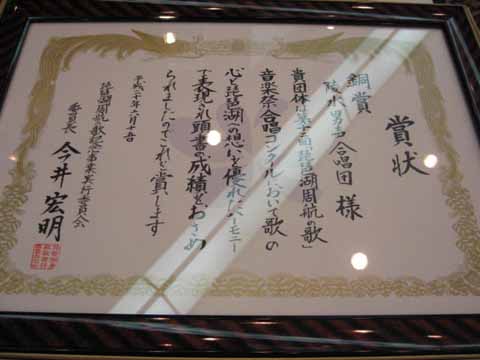 賞状
銅賞
陵水男声合唱団 様
貴団体は第十二回「琵琶湖周航の歌」
音楽祭合唱コンクールにおいて歌の
心と琵琶湖への想いを優れたハーモニー
で表現され頭書の成績をおさめ
られましたのでこれを賞します
平成二十年六月十五日
琵琶湖周航の歌 事業実行委員会
委員長 今井宏明